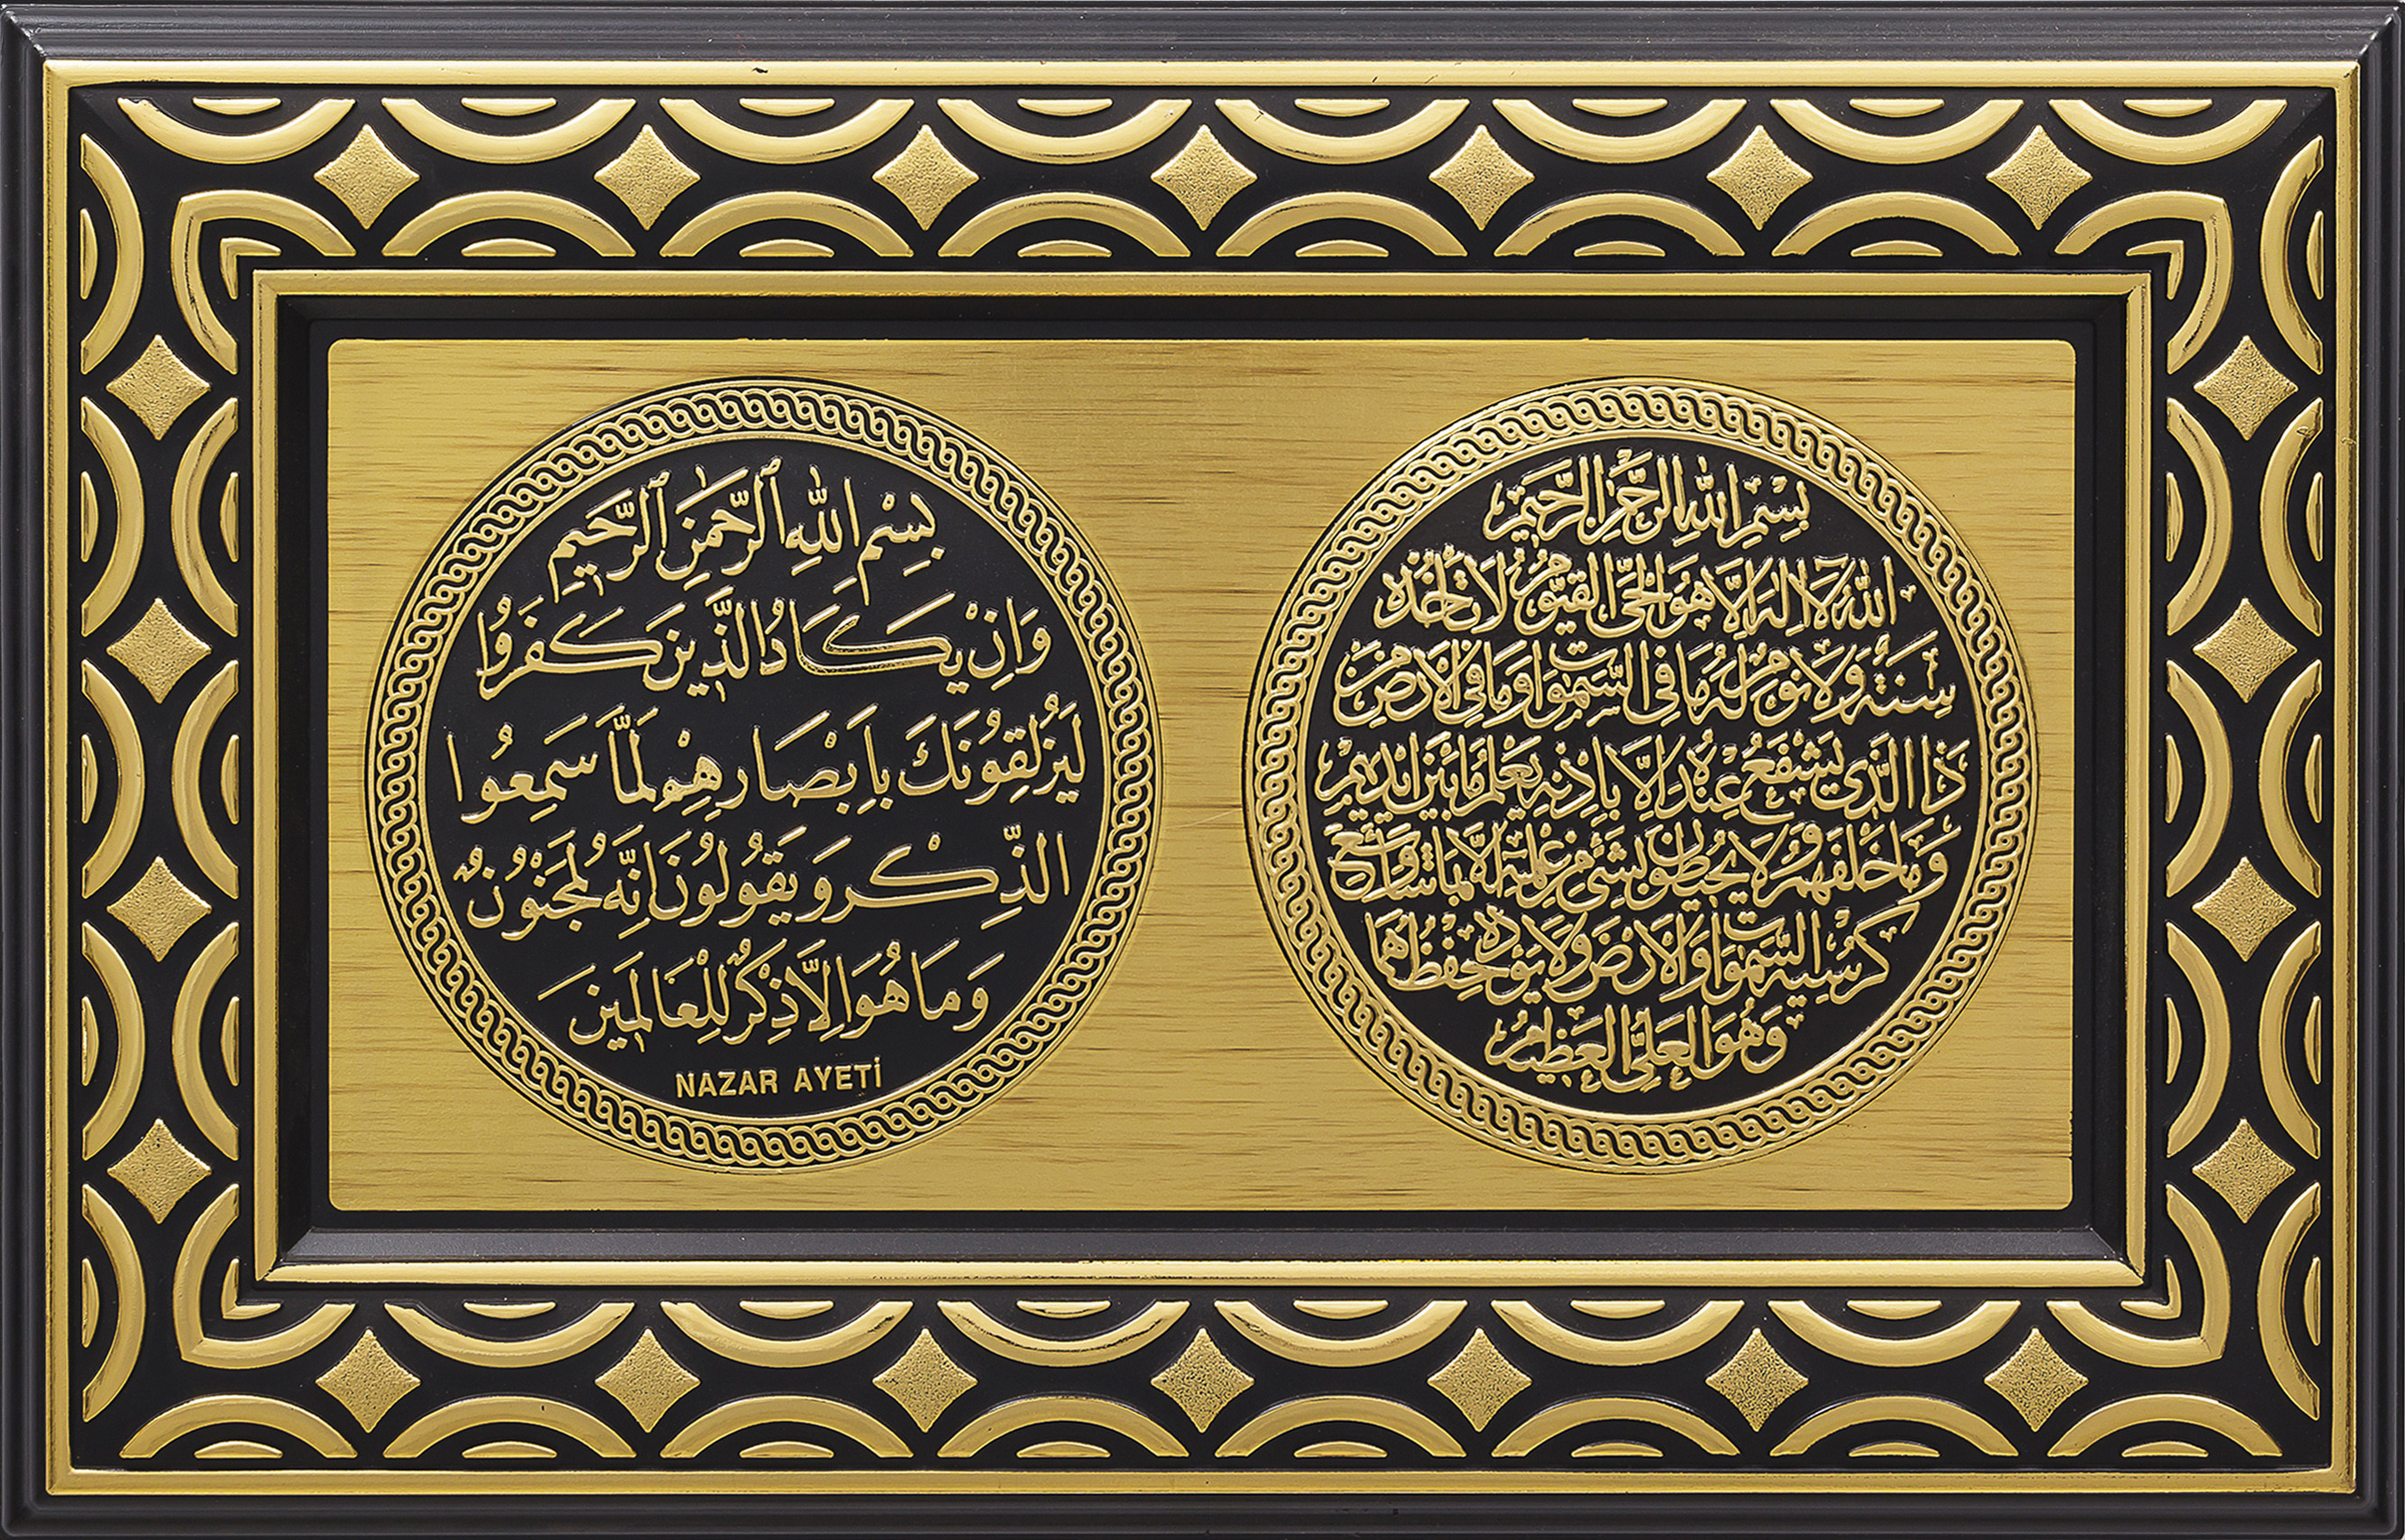 بِسْمِ اللهِ الرَّحْمٰنِ الرَّحِيمِ
اَللهُ لَا اِلٰهَ اِلَّا هُوَ الْحَيُّ الْقَيُّومُ لَا تَأْخُذُهُ
سِنَةٌ وَلَا نَوْمٌ لَهُ مَا فِي السَّمٰوَاتِ وَمَا فِي الْاَرْضِ مَنْ
ذَا الَّذِي يَشْفَعُ عِنْدَهُ اِلَّا بِاِذْنِهِ يَعْلَمُ مَا بَيْنَ اَيْدِيهِمْ
وَمَا خَلْفَهُمْ وَلَا يُحِيطُونَ بِشَيْءٍ مِنْ عِلْمِهِ اِلَّا بِمَا شَاءَ وَسِعَ
كُرْسِيُّهُ السَّمٰوَاتِ وَالْاَرْضَ وَلَا يَؤُدُهُ حِفْظُهُمَا
وَهُوَ الْعَلِيُّ الْعَظِيمُ
بِسْمِ اللهِ ٱلرَّحْمَٰنِ ٱلرَّحِيمِ
وَاِنْ يَكَادُ الَّذِينَ كَفَرُوا
لَيُزْلِقُونَكَ بِاَبْصَارِهِمْ لَمَّا سَمِعُوا
الذِّكْرَ وَيَقُولُونَ اِنَّهُ لَمَجْنُونٌ
وَمَا هُوَ اِلَّا ذِكْرٌ لِلْعَالَمِينَ
NAZAR AYETİ